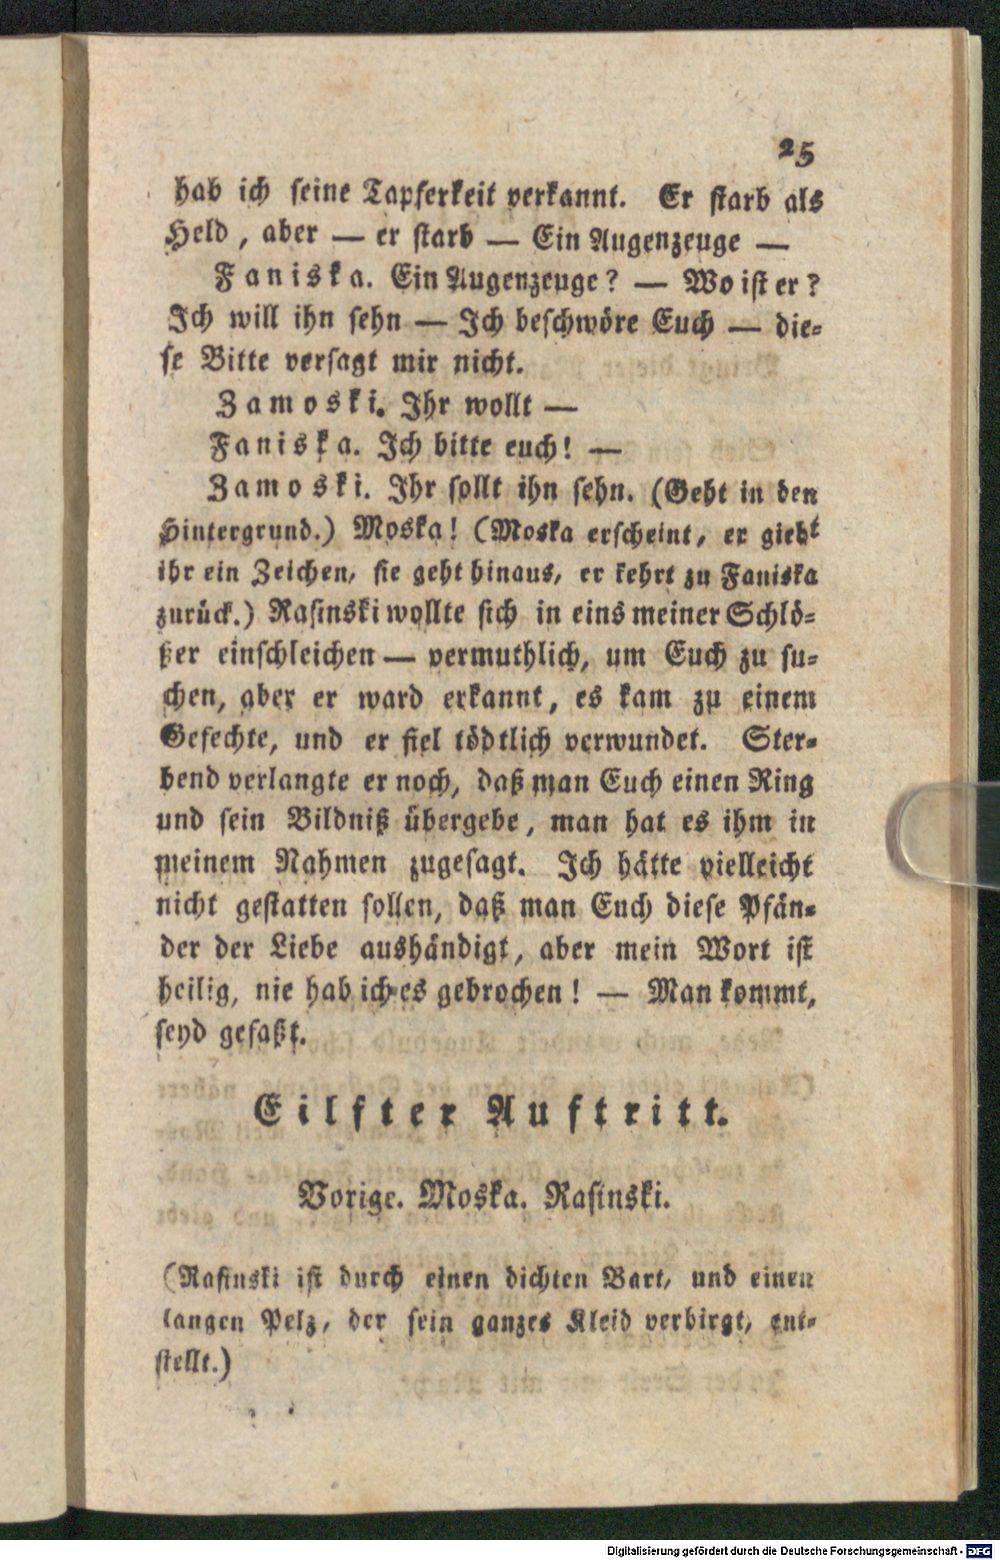 25
hab ich seine Tapferkeit verkannt. Er starb als
Held, aber — er starb — Ein Augenzeuge —
Faniska. Ein Augenzeuge? — Wo ist er?
Ich will ihn sehn — Ich beschwöre Euch — die-
se Bitte versagt mir nicht.
Zamoski. Ihr wollt —
Faniska. Ich bitte euch! —
Zamoski. Ihr sollt ihn sehn. (Geht in den
Hintergrund.) Moska! (Moska erscheint, er giebt
ihr ein Zeichen, sie geht hinaus, er kehrt zu Faniska
zurück.) Rasinski wollte sich in eins meiner Schlö-
ßer einschleichen — vermuthlich, um Euch zu su-
chen, aber er ward erkannt, es kam zu einem
Gefechte, und er fiel tödtlich verwundet. Ster-
bend verlangte er noch, daß man Euch einen Ring
und sein Bildniß übergebe, man hat es ihm in
meinem Nahmen zugesagt. Ich hätte vielleicht
nicht gestatten sollen, daß man Euch diese Pfän-
der der Liebe aushändigt, aber mein Wort ist
heilig, nie hab ich es gebrochen! — Man kommt,
seyd gefaßt.
Eilfter Auftritt.
Vorige. Moska. Rasinski.
(Rasinski ist durch einen dichten Bart, und einen
langen Pelz, der sein ganzes Kleid verbirgt, ent-
stellt.)
Digitalisierung gefördert durch die Deutsche Forschungsgemeinschaft - DFG